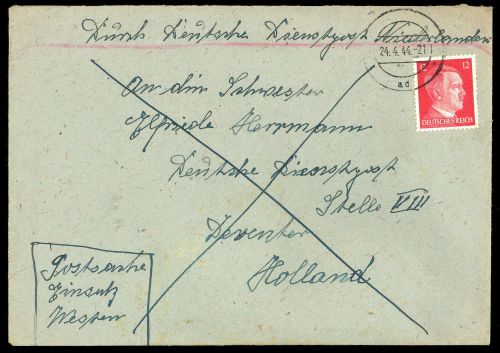 Durch Deutsche Dienstpost Niederlanden
24.4.44.-21
ad
12 12
DEUTSCHES REICH
An die Schwester
Elfriede Herrmann
Deutsche Dienstpost
Stelle VIII
Deventer
Holland
Postsache
Einsatz
Westen